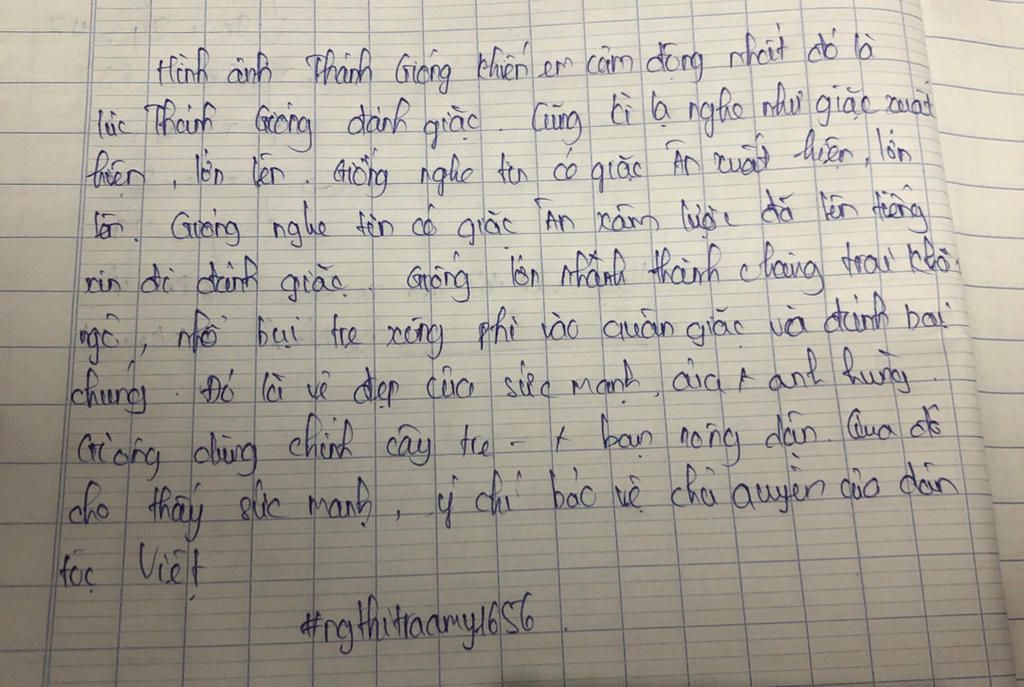 Hình ảnh Thánh Gióng khiến em cảm động nhất đó là
lúc Thánh Gióng đánh giặc. Cũng kì lạ nghe như giặc xuất
hiện, lớn lên. Gióng nghe tin có giặc Ân xuất hiện, lớn
lên. Gióng nghe tin có giặc Ân xâm lược đã lên tiếng
xin đi đánh giặc. Gióng lớn nhanh thành chàng trai khôi
ngô, nhổ bụi tre xông phi vào quân giặc và đánh bại
chúng. Đó là vẻ đẹp của sức mạnh, của + anh hùng.
Gióng dùng chính cây tre - + bạn nông dân. Qua đó
cho thấy sức mạnh, ý chí bảo vệ chủ quyền của dân
tộc Việt
#ngthitraamy1656.